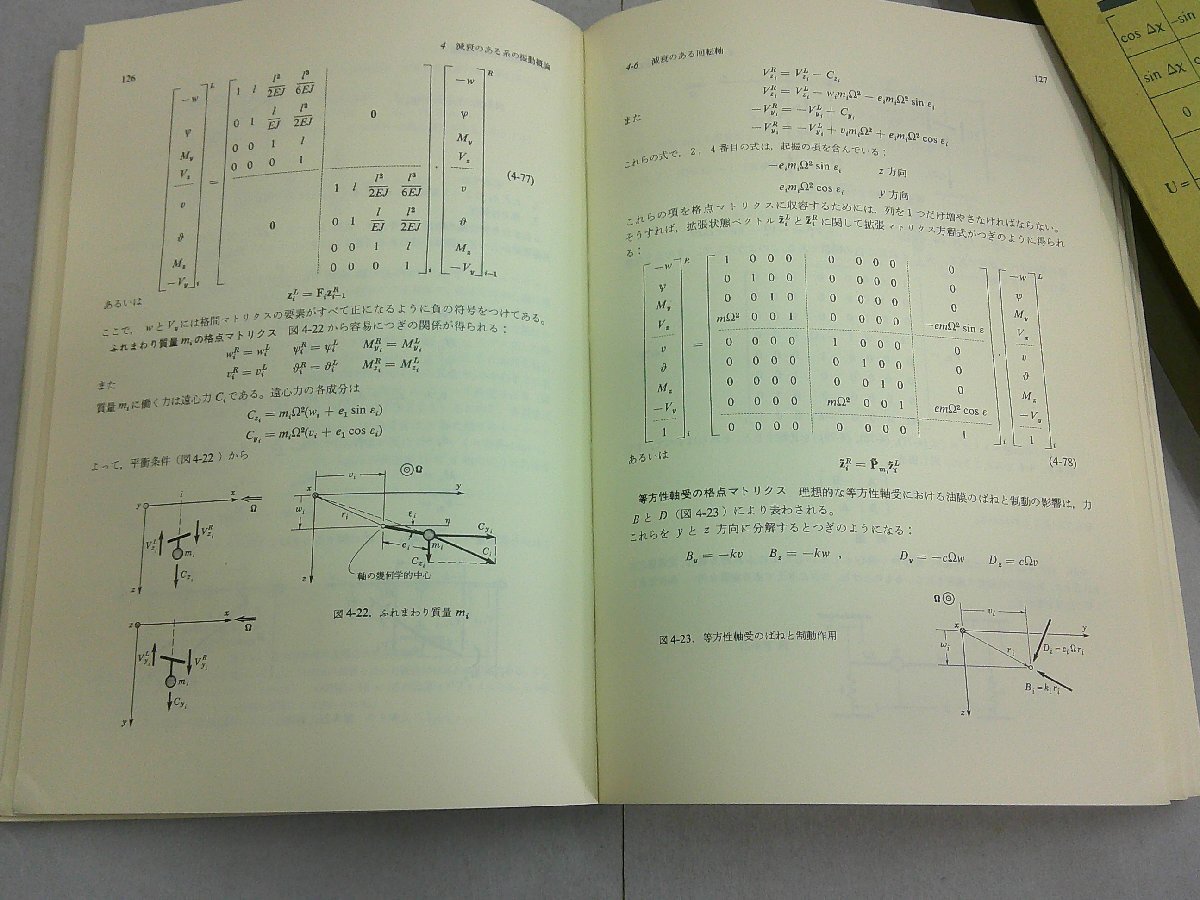 126
4 減衰のある系の振動概論
-w L 1 l l²/2EJ l³/6EJ -w R
ψ 0 1 l/EJ l²/2EJ 0 ψ
M_y 0 0 1 l M_y
V_z 0 0 0 1 V_z
= (4-77)
v 1 l l²/2EJ l³/6EJ v
ϑ 0 0 1 l/EJ l²/2EJ ϑ
M_z 0 0 1 l M_z
-V_y i 0 0 0 1 i -V_y i-1
あるいは
z_i^L = F_i z_{i-1}^R
ここで, wとV_yには格間マトリクスの要素がすべて正になるように負の符号をつけてある。
ふれまわり質量 m_i の格点マトリクス 図4-22から容易につぎの関係が得られる:
w_i^R = w_i^L ψ_i^R = ψ_i^L M_{y_i}^R = M_{y_i}^L
v_i^R = v_i^L ϑ_i^R = ϑ_i^L M_{z_i}^R = M_{z_i}^L
また
質量 m_i に働く力は遠心力 C_i である。遠心力の各成分は
C_{z_i} = m_iΩ²(w_i + e_1 sin ε_i)
C_{y_i} = m_iΩ²(v_i + e_1 cos ε_i)
よって, 平衡条件(図4-22)から
i
y x Ω
V_{z_i}^L V_{z_i}^R
m_i
C_{z_i}
z
x Ω
z
V_{y_i}^L V_{y_i}^R
m_i
C_{y_i}
y
v_i Ω
x y
w_i r_i ε_i η
C_{y_i}
m_i
e_i C_i
C_{z_i}
z
軸の幾何学的中心
図4-22. ふれまわり質量 m_i
4-6 減衰のある回転軸
127
V_{z_i}^R = V_{z_i}^L − C_{z_i}
V_{z_i}^R = V_{z_i}^L − w_i m_iΩ² − e_i m_iΩ² sin ε_i
また
−V_{y_i}^R = −V_{y_i}^L − C_{y_i}
−V_{y_i}^R = −V_{y_i}^L + v_i m_iΩ² + e_i m_iΩ² cos ε_i
これらの式で, 2, 4番目の式は, 起振の項を含んでいる:
−e_i m_iΩ² sin ε_i z 方向
e_i m_iΩ² cos ε_i y 方向
これらの項を格点マトリクスに収容するためには, 列を1つだけ増やさなければならない。
そうすれば, 拡張状態ベクトル z̃_i^L と z̃_i^R に関して拡張マトリクス方程式がつぎのように得られ
る:
-w R 1 0 0 0 0 0 0 0 0 -w L
ψ 0 1 0 0 0 0 0 0 0 ψ
M_y 0 0 1 0 0 0 0 0 0 M_y
V_z mΩ² 0 0 1 0 0 0 0 -emΩ² sin ε V_z
v = 0 0 0 0 1 0 0 0 0 v
ϑ 0 0 0 0 0 1 0 0 0 ϑ
M_z 0 0 0 0 0 0 1 0 0 M_z
-V_y 0 0 0 0 mΩ² 0 0 1 emΩ² cos ε -V_y
1 i 0 0 0 0 0 0 0 0 1 i 1 i
あるいは
z̃_i^R = P̃_{m_i} z̃_i^L (4-78)
等方性軸受の格点マトリクス 理想的な等方性軸受における油膜のばねと制動の影響は, 力
BとD(図4-23)により表わされる。
これらを y と z 方向に分解するとつぎのようになる:
B_y = −kv B_z = −kw , D_y = −cΩw D_z = cΩv
Ω v_i
x y
w_i r_i D_i
B_i
z
図4-23. 等方性軸受のばねと制動作用
cos Δx -sin
sin Δx
0
U =